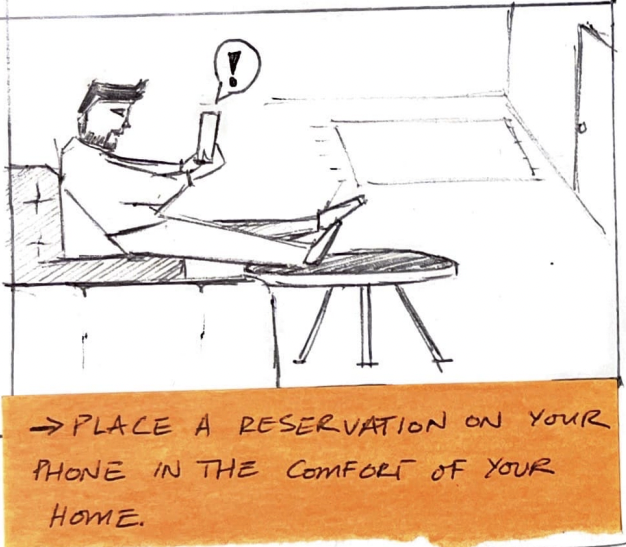 !
→ PLACE A RESERVATION ON YOUR
PHONE IN THE COMFORT OF YOUR
HOME.